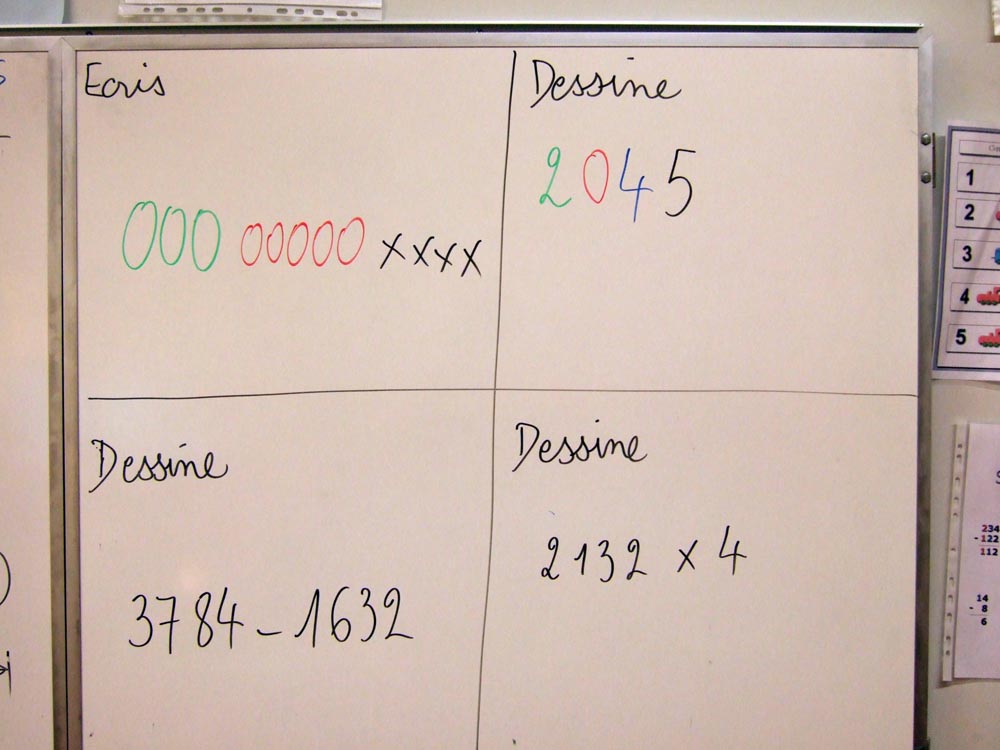 Ecris
OOO OOOOO xxxx
Dessine
2045
Dessine
3784 - 1632
Dessine
2132 x 4
1
2
3
4
5
234
-122
112
14
- 8
6